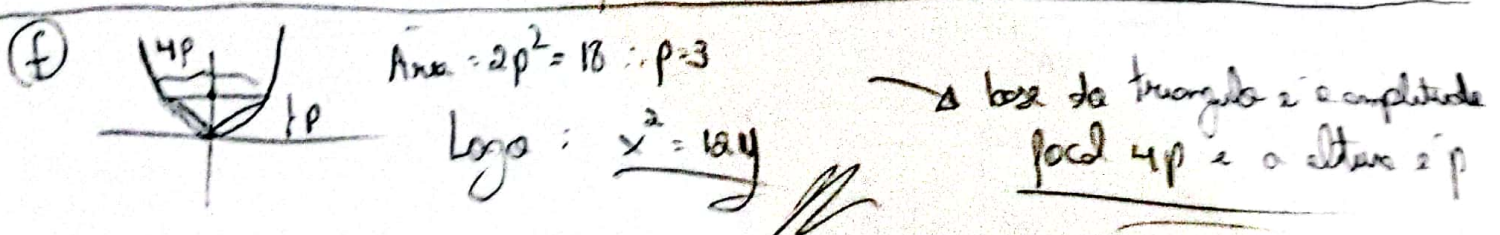 f
4p
p
Área = 2p² = 18 ∴ p=3
Logo : x² = 12y
base do triangulo é a amplitude
focal 4p e a altura é p